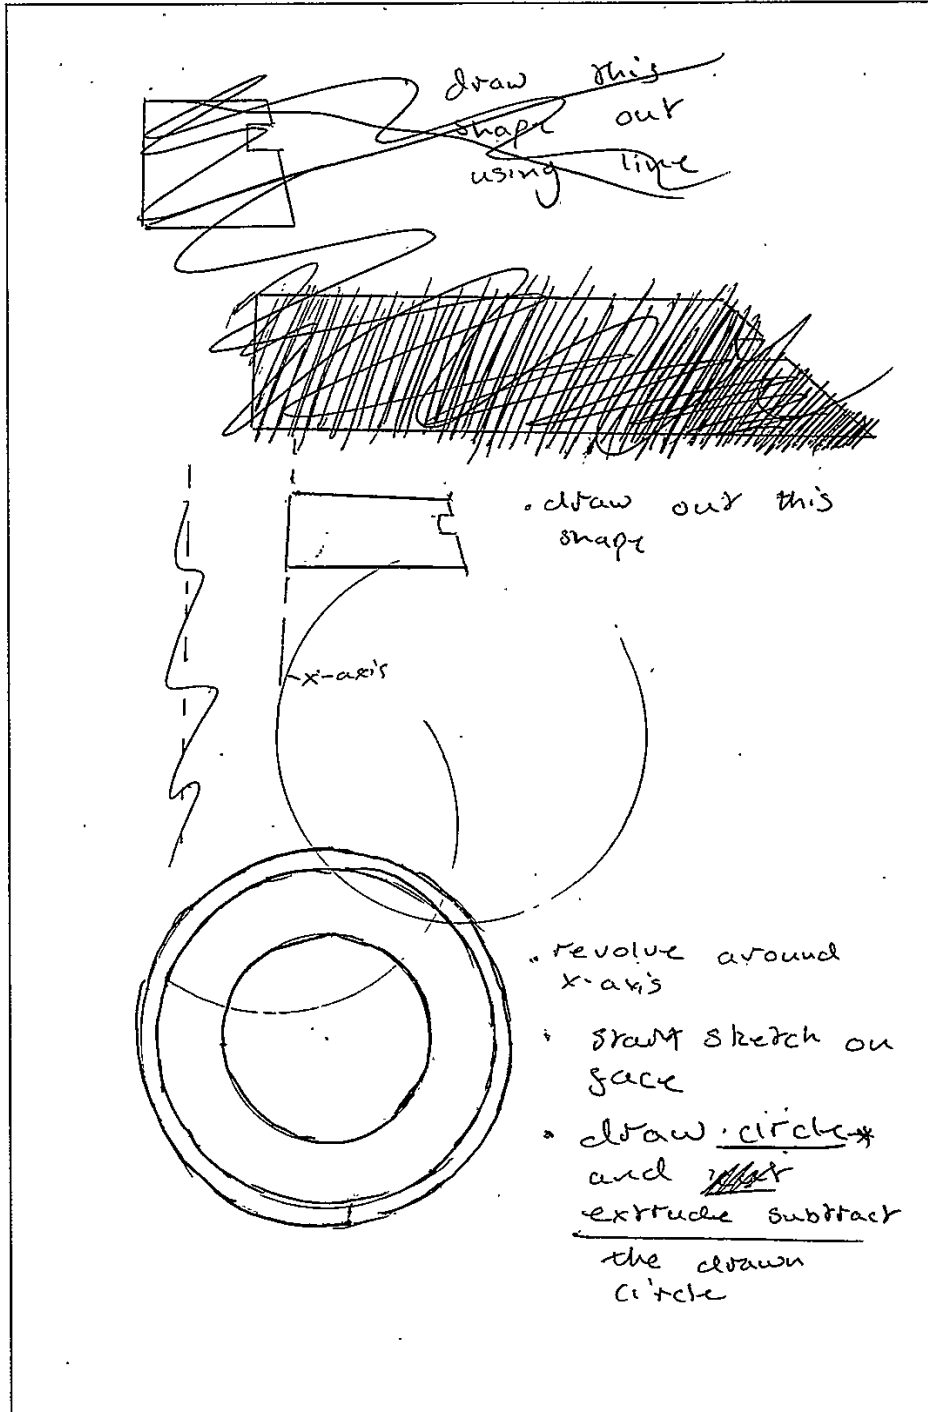 draw this
shape out
using line
. draw out this
shape
x-axis
. revolve around
x-axis
. start sketch on
face
. draw circle *
and
extrude subtract
the drawn
circle